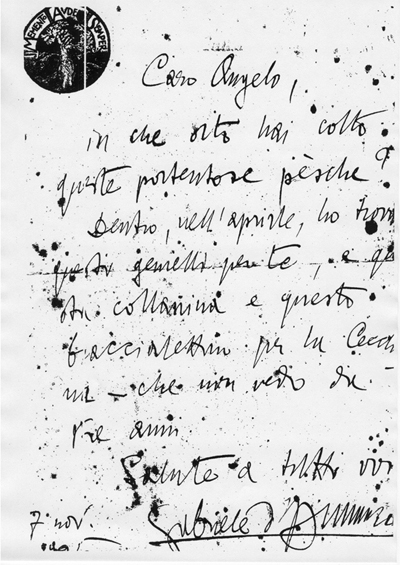 MEMENTO AUDERE SEMPER
Caro Angelo,
in che orto hai colto
queste portentose pèsche?
Dentro, nell'aprirle, ho trova
questi gemelli per te, e que
sta collanina e questo
braccialettino per la Cecch
na – che non vedo da
tre anni.
Salute a tutti voi
7 nov.
Gabriele d'Annunzio